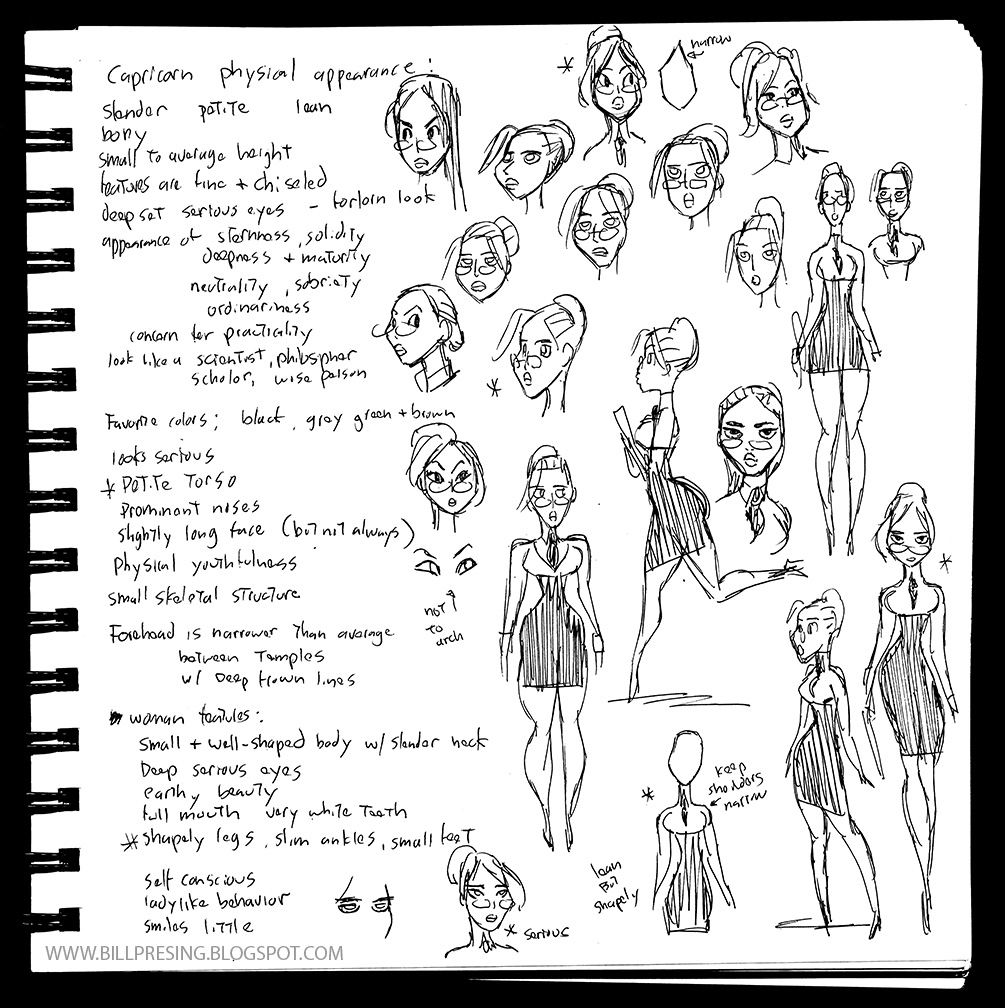 Capricorn physical appearance:
slender petite lean
bony
small to average height
features are fine + chiseled
deep set serious eyes - forlorn look
appearance of sternness, solidity
deepness + maturity
neutrality, sobriety
ordinariness
concern for practicality
look like a scientist, philospher
scholor, wise person
Favorite colors; black, grey green + brown
looks serious
* Petite Torso
prominant noses
slightly long face (but not always)
physical youthfulness
small skeletal structure
Forehead is narrower than average
between Temples
w/ Deep frown lines
woman features:
small + well-shaped body w/ slender neck
Deep serious eyes
earthy beauty
full mouth very white Teeth
* shapely legs, slim ankles, small feet
self conscious
ladylike behavior
smiles little
* narrow
*
not
to
arch
*
* keep
shoulders
narrow
lean
But
shapely
* serious
WWW.BILLPRESING.BLOGSPOT.COM